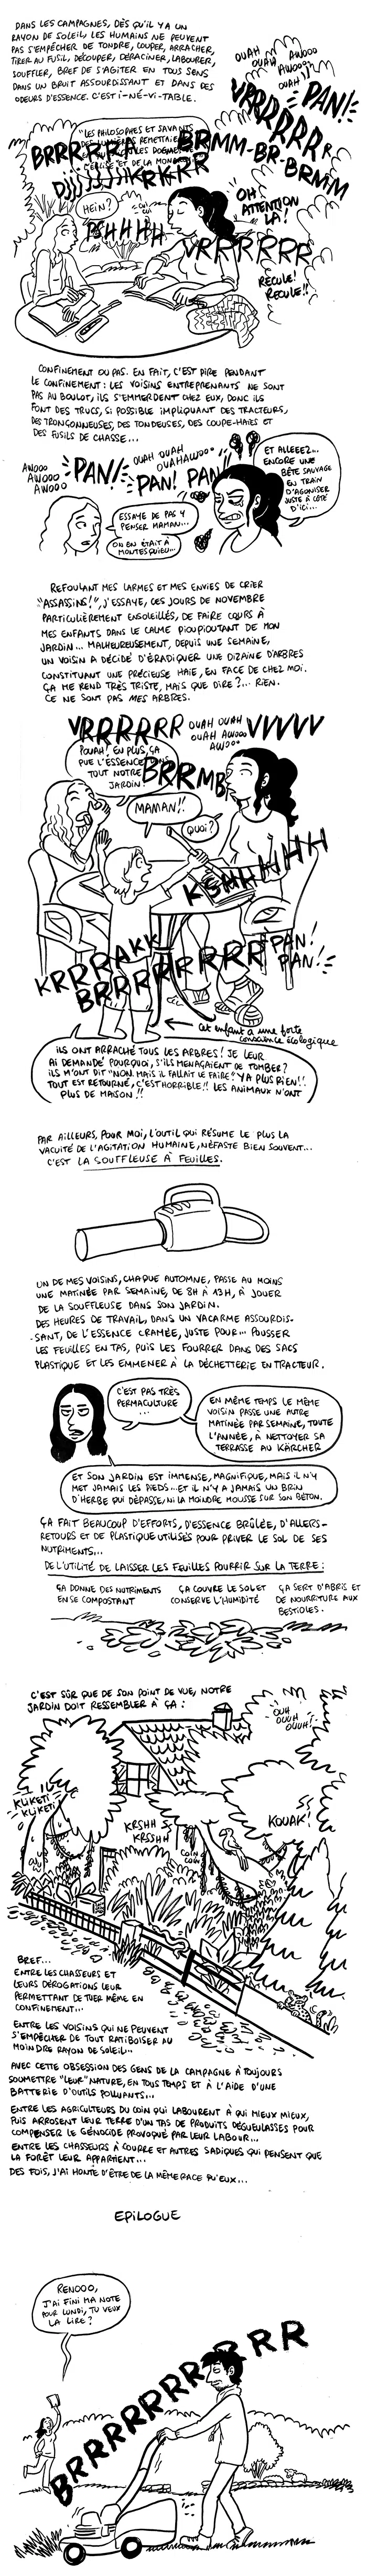 DANS LES CAMPAGNES, DÈS QU'IL Y A UN
RAYON DE SOLEIL, LES HUMAINS NE PEUVENT
PAS S'EMPÊCHER DE TONDRE, COUPER, ARRACHER,
TIRER AU FUSIL, DÉCOUPER, DÉRACINER, LABOURER,
SOUFFLER, BREF DE S'AGITER EN TOUS SENS
DANS UN BRUIT ASSOURDISSANT ET DANS DES
ODEURS D'ESSENCE. C'EST I-NÉ-VI-TABLE.
OUAH
OUAH
AWOOO
AWOOO
OUAH!
VRRRRRRR
PAN!!
"LES PHILOSOPHES ET SAVANTS
DES LUMIÈRES REMETTAIENT
LES DOGMES
ÉGLISE ET DE LA
BRRRRRRR
BRMM-BR-BRMM
DJJJJJJ
KRKRR
HEIN?
CUI
CUI
PSHHHH
OH!
ATTENTION
LÀ!
VRRRRRR
RECULE!
RECULE!!
CONFINEMENT OU PAS. EN FAIT, C'EST PIRE PENDANT
LE CONFINEMENT: LES VOISINS ENTREPRENANTS NE SONT
PAS AU BOULOT, ILS S'EMMERDENT CHEZ EUX, DONC ILS
FONT DES TRUCS, SI POSSIBLE IMPLIQUANT DES TRACTEURS,
DES TRONÇONNEUSES, DES TONDEUSES, DES COUPE-HAIES ET
DES FUSILS DE CHASSE...
AWOOO
AWOOO
AWOOO
PAN!!
OUAH OUAH
OUAHAWOOO
PAN! PAN!
ET ALLEEZ...
ENCORE UNE
BÊTE SAUVAGE
EN TRAIN
D'AGONISER
JUSTE À CÔTÉ
D'ICI...
ESSAYE DE PAS Y
PENSER MAMAN...
ON EN ÉTAIT À
MONTESQUIEU...
REFOULANT MES LARMES ET MES ENVIES DE CRIER
"ASSASSINS!", J'ESSAYE, CES JOURS DE NOVEMBRE
PARTICULIÈREMENT ENSOLEILLÉS, DE FAIRE COURS À
MES ENFANTS DANS LE CALME PIOUPIOUTANT DE MON
JARDIN... MALHEUREUSEMENT, DEPUIS UNE SEMAINE,
UN VOISIN A DÉCIDÉ D'ÉRADIQUER UNE DIZAINE D'ARBRES
CONSTITUANT UNE PRÉCIEUSE HAIE, EN FACE DE CHEZ MOI.
ÇA ME REND TRÈS TRISTE, MAIS QUE DIRE?... RIEN.
CE NE SONT PAS MES ARBRES.
VRRRRRR
OUAH OUAH
OUAH AWOOO
AWOO
VVVVV
POUAH! EN PLUS, ÇA
PUE L'ESSENCE DANS
TOUT NOTRE
JARDIN!
BRRMB
MAMAN!!
QUOI?
KSHHHHHH
KRRRAKK
BRRRRRRRRR
PAN!
PAN!!
Cet enfant a une forte
conscience écologique
ILS ONT ARRACHÉ TOUS LES ARBRES! JE LEUR
AI DEMANDÉ POURQUOI, S'ILS MENAÇAIENT DE TOMBER?
ILS M'ONT DIT "NON. MAIS IL FALLAIT LE FAIRE". YA PLUS RIEN!!
TOUT EST RETOURNÉ, C'EST HORRIBLE!! LES ANIMAUX N'ONT
PLUS DE MAISON!!
PAR AILLEURS, POUR MOI, L'OUTIL QUI RÉSUME LE PLUS LA
VACUITÉ DE L'AGITATION HUMAINE, NÉFASTE BIEN SOUVENT...
C'EST LA SOUFFLEUSE À FEUILLES.
UN DE MES VOISINS, CHAQUE AUTOMNE, PASSE AU MOINS
UNE MATINÉE PAR SEMAINE, DE 8H À 13H, À JOUER
DE LA SOUFFLEUSE DANS SON JARDIN.
DES HEURES DE TRAVAIL, DANS UN VACARME ASSOURDIS-
-SANT, DE L'ESSENCE CRAMÉE, JUSTE POUR... POUSSER
LES FEUILLES EN TAS, PUIS LES FOURRER DANS DES SACS
PLASTIQUE ET LES EMMENER À LA DÉCHETTERIE EN TRACTEUR.
C'EST PAS TRÈS
PERMACULTURE
...
EN MÊME TEMPS LE MÊME
VOISIN PASSE UNE AUTRE
MATINÉE PAR SEMAINE, TOUTE
L'ANNÉE, À NETTOYER SA
TERRASSE AU KÄRCHER
ET SON JARDIN EST IMMENSE, MAGNIFIQUE, MAIS IL N'Y
MET JAMAIS LES PIEDS... ET IL N'Y A JAMAIS UN BRIN
D'HERBE QUI DÉPASSE, NI LA MOINDRE MOUSSE SUR SON BÉTON.
ÇA FAIT BEAUCOUP D'EFFORTS, D'ESSENCE BRÛLÉE, D'ALLERS-
RETOURS ET DE PLASTIQUE UTILISÉS POUR PRIVER LE SOL DE SES
NUTRIMENTS...
DE L'UTILITÉ DE LAISSER LES FEUILLES POURRIR SUR LA TERRE:
ÇA DONNE DES NUTRIMENTS
EN SE COMPOSTANT
ÇA COUVRE LE SOL ET
CONSERVE L'HUMIDITÉ
ÇA SERT D'ABRIS ET
DE NOURRITURE AUX
BESTIOLES.
C'EST SÛR QUE DE SON POINT DE VUE, NOTRE
JARDIN DOIT RESSEMBLER À ÇA:
OUH
OUUH
OUUH!
KUKETI
KUKETI
KRSHH
KRSSHH
KOUAK!
COIN
COIN
BREF...
ENTRE LES CHASSEURS ET
LEURS DÉROGATIONS LEUR
PERMETTANT DE TUER MÊME EN
CONFINEMENT...
ENTRE LES VOISINS QUI NE PEUVENT
S'EMPÊCHER DE TOUT RATIBOISER AU
MOINDRE RAYON DE SOLEIL...
AVEC CETTE OBSESSION DES GENS DE LA CAMPAGNE À TOUJOURS
SOUMETTRE "LEUR" NATURE, EN TOUS TEMPS ET À L'AIDE D'UNE
BATTERIE D'OUTILS POLLUANTS...
ENTRE LES AGRICULTEURS DU COIN QUI LABOURENT À QUI MIEUX MIEUX,
PUIS ARROSENT LEUR TERRE D'UN TAS DE PRODUITS DÉGUEULASSES POUR
COMPENSER LE GÉNOCIDE PROVOQUÉ PAR LEUR LABOUR...
ENTRE LES CHASSEURS À COURRE ET AUTRES SADIQUES QUI PENSENT QUE
LA FORÊT LEUR APPARTIENT...
DES FOIS, J'AI HONTE D'ÊTRE DE LA MÊME RACE QU'EUX...
EPILOGUE
RENOOO,
J'AI FINI MA NOTE
POUR LUNDI, TU VEUX
LA LIRE?
BRRRRRRRRRRR